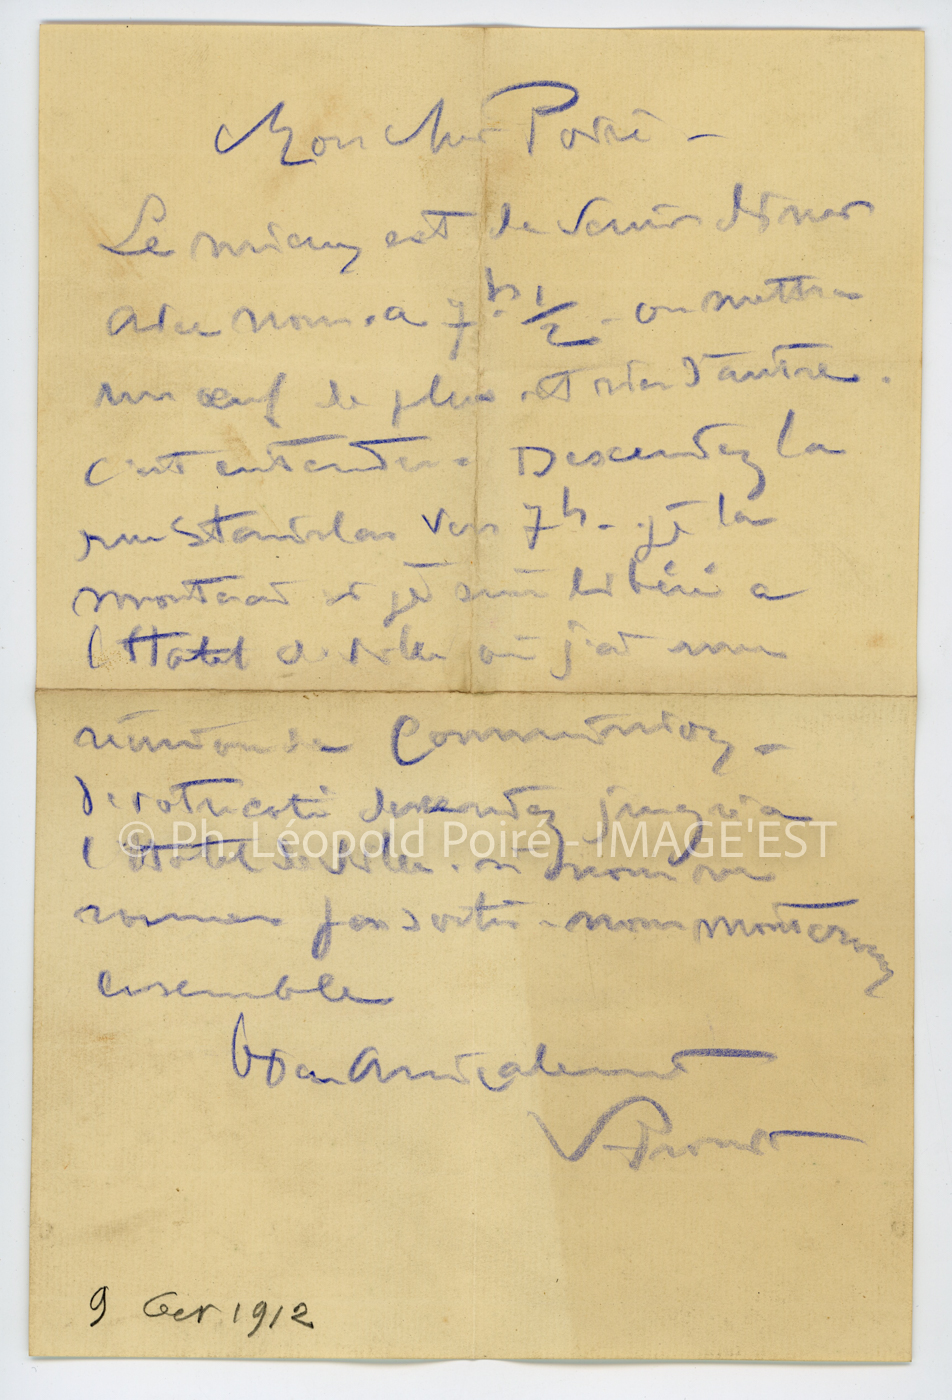 Mon cher Poiré –
Le mieux est de venir diner
avec nous. a 7h 1/2. on mettra
un œuf de plus et rien d'autre.
c'est entendu. Descendez la
rue Stanislas vers 7h. je la
monterai si je suis libéré a
l'Hôtel de ville où j'ai une
réunion de Commission –
De votre coté descendez jusqu'a
© Ph. Léopold Poiré – IMAGE'EST
l'Hôtel de Ville. si nous ne
sommes pas sortis – nous monterons
ensemble
bien Amicalement
V. Prouvé
9 1912